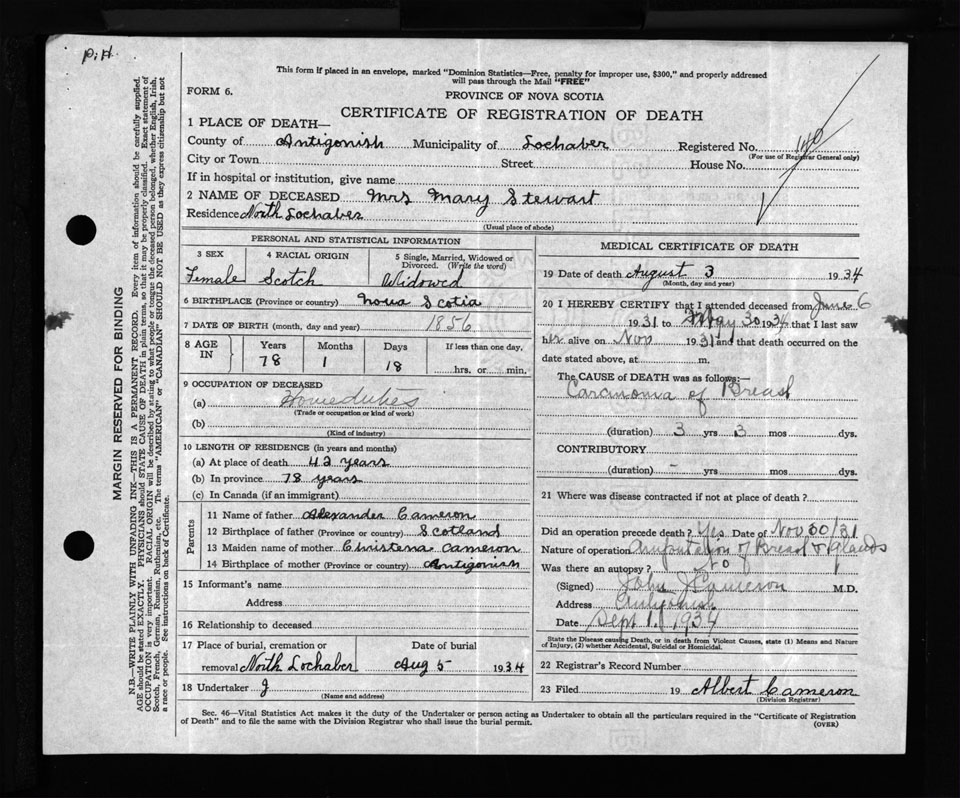 p.H.
This form if placed in an envelope, marked "Dominion Statistics—Free, penalty for improper use, $300," and properly addressed
will pass through the Mail "FREE"
FORM 6.
PROVINCE OF NOVA SCOTIA
CERTIFICATE OF REGISTRATION OF DEATH
1 PLACE OF DEATH—
County of Antigonish Municipality of Lochaber Registered No. 140
(For use of Registrar General only)
City or Town Street House No.
If in hospital or institution, give name
2 NAME OF DECEASED Mrs Mary Stewart
Residence North Lochaber
(Usual place of abode)
PERSONAL AND STATISTICAL INFORMATION
3 SEX 4 RACIAL ORIGIN 5 Single, Married, Widowed or
Divorced. (Write the word)
Female Scotch Widowed
6 BIRTHPLACE (Province or country) Nova Scotia
7 DATE OF BIRTH (month, day and year) 1856
8 AGE IN Years Months Days If less than one day,
78 1 18 hrs. or min.
9 OCCUPATION OF DECEASED
(a) Homeduties
(Trade or occupation or kind of work)
(b)
(Kind of industry)
10 LENGTH OF RESIDENCE (in years and months)
(a) At place of death 42 years
(b) In province 78 years
(c) In Canada (if an immigrant)
Parents
11 Name of father Alexander Cameron
12 Birthplace of father (Province or country) Scotland
13 Maiden name of mother Christena Cameron
14 Birthplace of mother (Province or country) Antigonish
15 Informant's name
Address
16 Relationship to deceased
17 Place of burial, cremation or Date of burial
removal North Lochaber Aug 5 1934
18 Undertaker J
(Name and address)
MEDICAL CERTIFICATE OF DEATH
19 Date of death August 3 1934
(Month, day and year)
20 I HEREBY CERTIFY that I attended deceased from June 6
1931 to May 30 1934 that I last saw
her alive on Nov 1931 and that death occurred on the
date stated above, at m.
The CAUSE OF DEATH was as follows:—
Carcinoma of Breast
(duration) 3 yrs 3 mos dys.
CONTRIBUTORY
(duration) - yrs mos dys.
21 Where was disease contracted if not at place of death?
Did an operation precede death? Yes Date of Nov 30/31
Nature of operation Amputation of Breast & glands
Was there an autopsy? no
(Signed) John J Cameron M.D.
Address Antigonish
Date Sept 1, 1934
State the Disease causing Death, or in death from Violent Causes, state (1) Means and Nature
of Injury, (2) whether Accidental, Suicidal or Homicidal.
22 Registrar's Record Number
23 Filed 19 Albert Cameron
(Division Registrar)
Sec. 46—Vital Statistics Act makes it the duty of the Undertaker or person acting as Undertaker to obtain all the particulars required in the "Certificate of Registration
of Death" and to file the same with the Division Registrar who shall issue the burial permit.
(OVER)
MARGIN RESERVED FOR BINDING
N.B.—WRITE PLAINLY WITH UNFADING INK—THIS IS A PERMANENT RECORD. Every item of information should be carefully supplied.
AGE should be stated EXACTLY. PHYSICIANS should STATE CAUSE OF DEATH in plain terms, so that it may be properly classified. Exact statement of
OCCUPATION is very important. RACIAL ORIGIN will be described by stating to what people or tongue the deceased person belonged, whether English, Irish,
Scotch, French, German, Russian, Ruthenian, etc. The terms "AMERICAN" or "CANADIAN" SHOULD NOT BE USED as they express citizenship but not
a race or people. See instructions on back of Certificate.